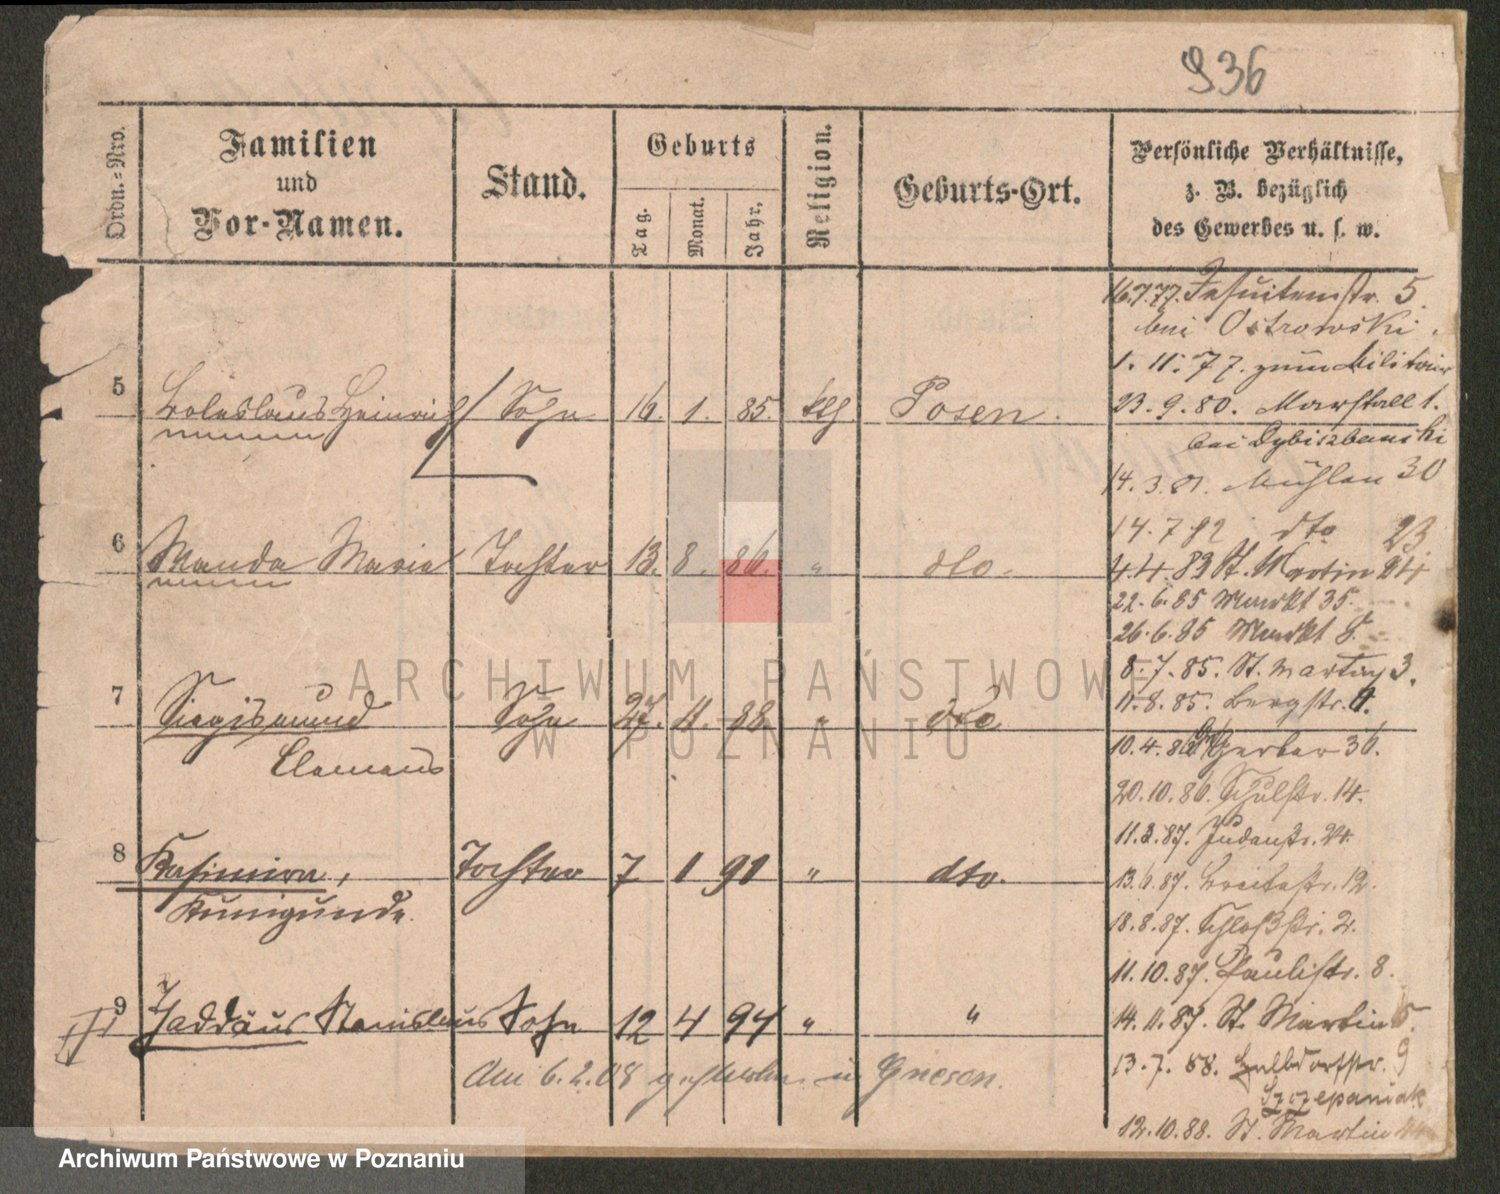 936
Ordn.=Nro.
Familien
und
Vor-Namen.
Stand.
Geburts
Tag.
Monat.
Jahr.
Religion.
Geburts-Ort.
Persönliche Verhältnisse,
z. B. bezüglich
des Gewerbes u. s. w.
16.7.77. Jesuitenstr. 5
bei Ostrowski.
1. 11. 77. zum Militair
5 Boleslaus Heinrich Sohn 16. 1. 85. kth. Posen.
23. 9. 80. Marstall 1.
bei
14. 3. 81. Mühlen 30
14. 7 82 dto 23.
6 Wanda Marie Tochter 13. 8. 86. " dto.
4.4. 83 St. Martin 24
22. 6. 85 Markt 35.
26. 6. 85 Markt
8. 7. 85. St. Martin 3.
11. 8. 85. Bergstr. 4.
7 Siegismund Sohn 27. 4. 88. " dto
Clemens
10. 4. 86 Gr. Gerber 36.
20. 10. 86. Schulstr. 14.
11. 3. 87. Judenstr. 24.
8 Kasimira, Tochter 7 1 91 " dto.
Kunigunde.
13. 6. 87. Breitestr. 12.
18. 8. 87. Schloßstr. 2.
11. 10. 87. Paulistr. 8.
9 Thaddäus Stanislaus Sohn 12 4 94 " "
14. 11. 87. St. Martin
13. 7. 88. Halbdorfstr. 9
Szczepaniak
Am 6. 2. 08 gestorben in Gnesen.
12. 10. 88. St. Martin
ARCHIWUM PAŃSTWOWE
W POZNANIU
Archiwum Państwowe w Poznaniu